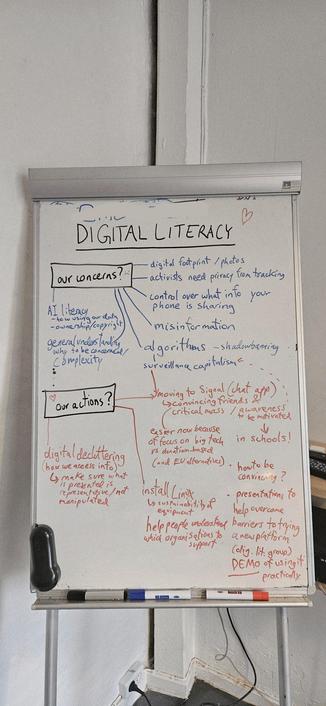 DIGITAL LITERACY
our concerns?
digital footprint / photos
activists need privacy from tracking
control over what info your
phone is sharing
misinformation
algorithms - shadowbanning
surveillance capitalism
AI literacy
- how using our data
- ownership/copyright
general understanding
why to be concerned/
complexity
our actions?
moving to Signal (chat app)
↳ convincing friends &
critical mass / awareness
to be motivated
in schools!
easier now because
of focus on big tech
vs donation-based
(and EU alternatives)
digital decluttering
(how we access info)
↳ make sure what
is presented is
representive/not
manipulated
install Linux
↳ sustainability of
equipment
help people understand
which organisations to
support
• how to be
convincing?
• presentations to
help overcome
barriers to trying
a new platform
(dig. lit. group)
DEMO of using it
practically